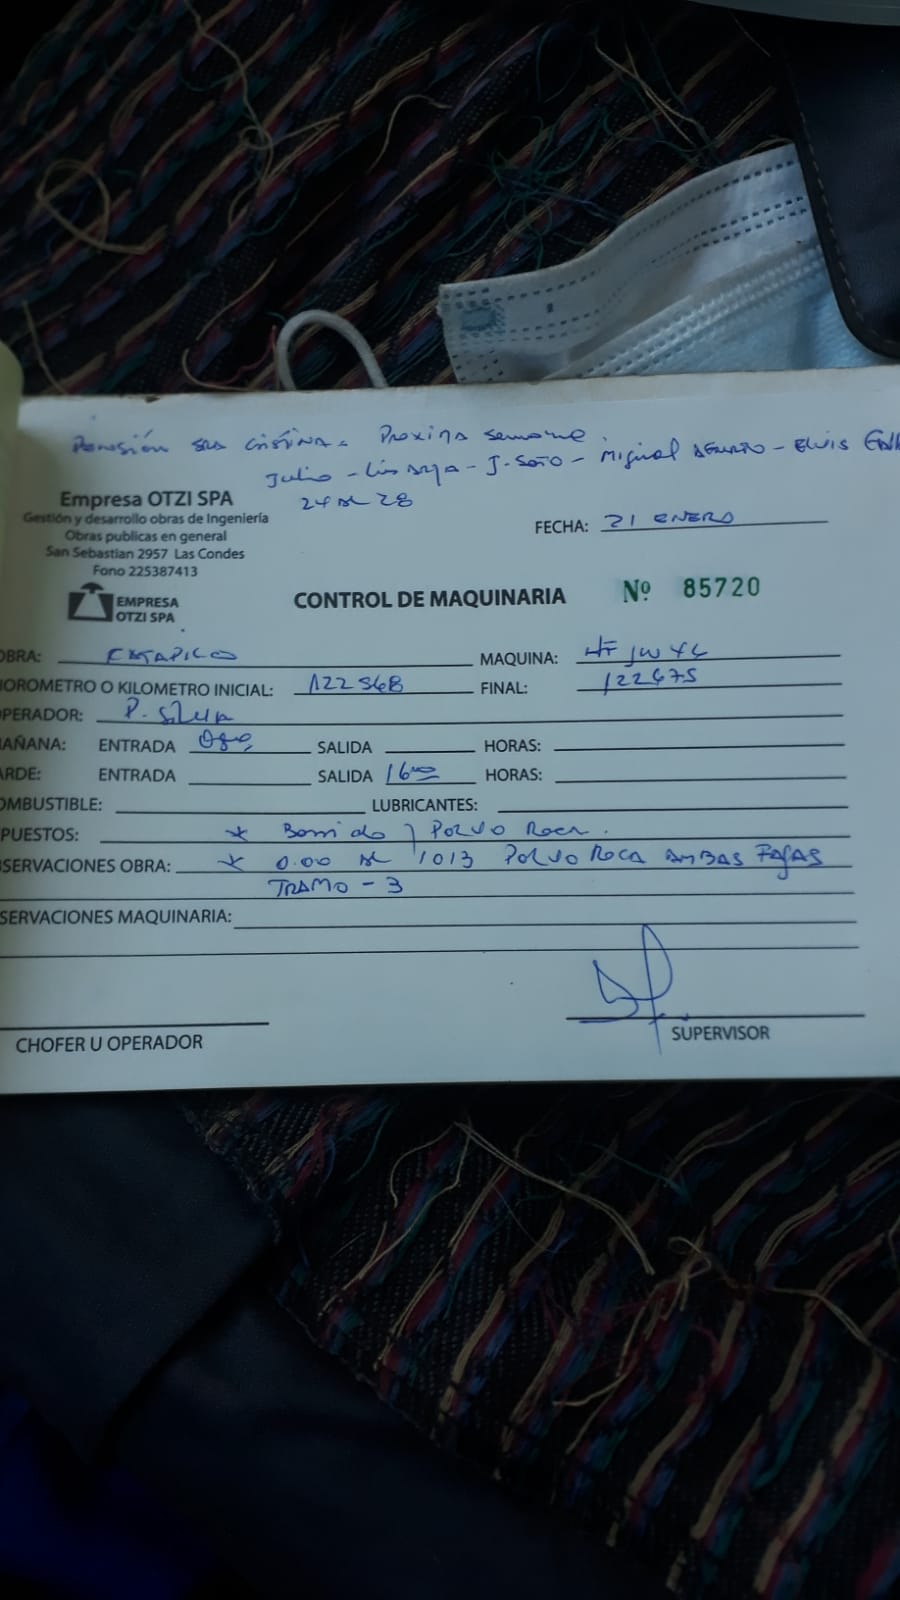 Pensión Sra Cristina. Proxima semana
Julio - Luis - J. Soto - Miguel - Elvis
24 al 28
Empresa OTZI SPA
Gestión y desarrollo obras de Ingeniería
Obras publicas en general
San Sebastian 2957 Las Condes
Fono 225387413
FECHA: 21 ENERO
EMPRESA
OTZI SPA
CONTROL DE MAQUINARIA
Nº 85720
OBRA:
MAQUINA:
HOROMETRO O KILOMETRO INICIAL: 122568
FINAL: 122675
OPERADOR: P. Silva
MAÑANA: ENTRADA SALIDA HORAS:
TARDE: ENTRADA SALIDA 16 00 HORAS:
OMBUSTIBLE: LUBRICANTES:
PUESTOS: * Barrido y Polvo Roca.
SERVACIONES OBRA: * 0.00 AL 1013 POLVO ROCA AMBAS FAJAS
TRAMO - 3
SERVACIONES MAQUINARIA:
CHOFER U OPERADOR
SUPERVISOR